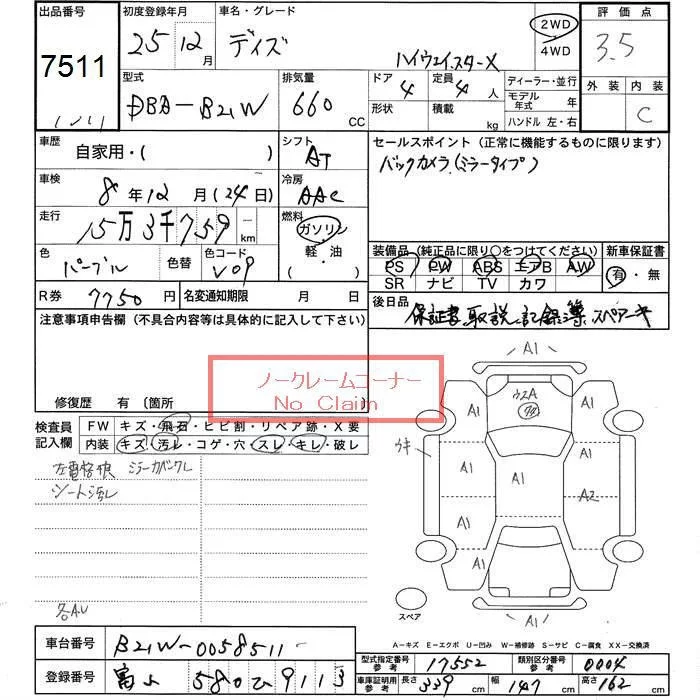 出品番号 初度登録年月 車名・グレード 評価点
7511 25年12月 デイズ ハイウェイスターX 2WD 4WD 3.5
型式 排気量 ドア 4 定員 4人 ディーラー・並行 外装 内装
DBA-B21W 660 CC 形状 積載 kg モデル年式 年 C
ハンドル 左・右
車歴 自家用・( ) シフト AT セールスポイント(正常に機能するものに限ります)
バックカメラ(ミラータイプ)
車検 8年12月(24日) 冷房 AAC
走行 15万3千759km 燃料 ガソリン 軽・油
色 パープル 色替 色コード V09
装備品(純正品に限り○をつけてください) 新車保証書
PS PW ABS エアB AW 有・無
SR ナビ TV カワ
R券 7750円 名変通知期限 月 日 後日品
保証書 取説 記録簿 スペアーキ
注意事項申告欄(不具合内容等は具体的に記入して下さい)
ノークレームコーナー
No Claim
修復歴 有 〔箇所
検査員記入欄 FW キズ・飛石・ヒビ割・リペア跡・X要
内装 キズ・汚レ・コゲ・穴・スレ・キレ・破レ
シート汚レ
各AU
A1
A1 A1
A1 A1
A1 A2
A1
A1 A1
A1
スペア
A-キズ E-エクボ U-凹み W-補修跡 S-サビ C-腐食 XX-交換済
車台番号 B21W-0058511
型式指定番号 参考 17552 類別区分番号 参考 0004
登録番号 富山 580ひ9113
車庫証明用 参考 長さ 339cm 幅 147cm 高さ 162cm